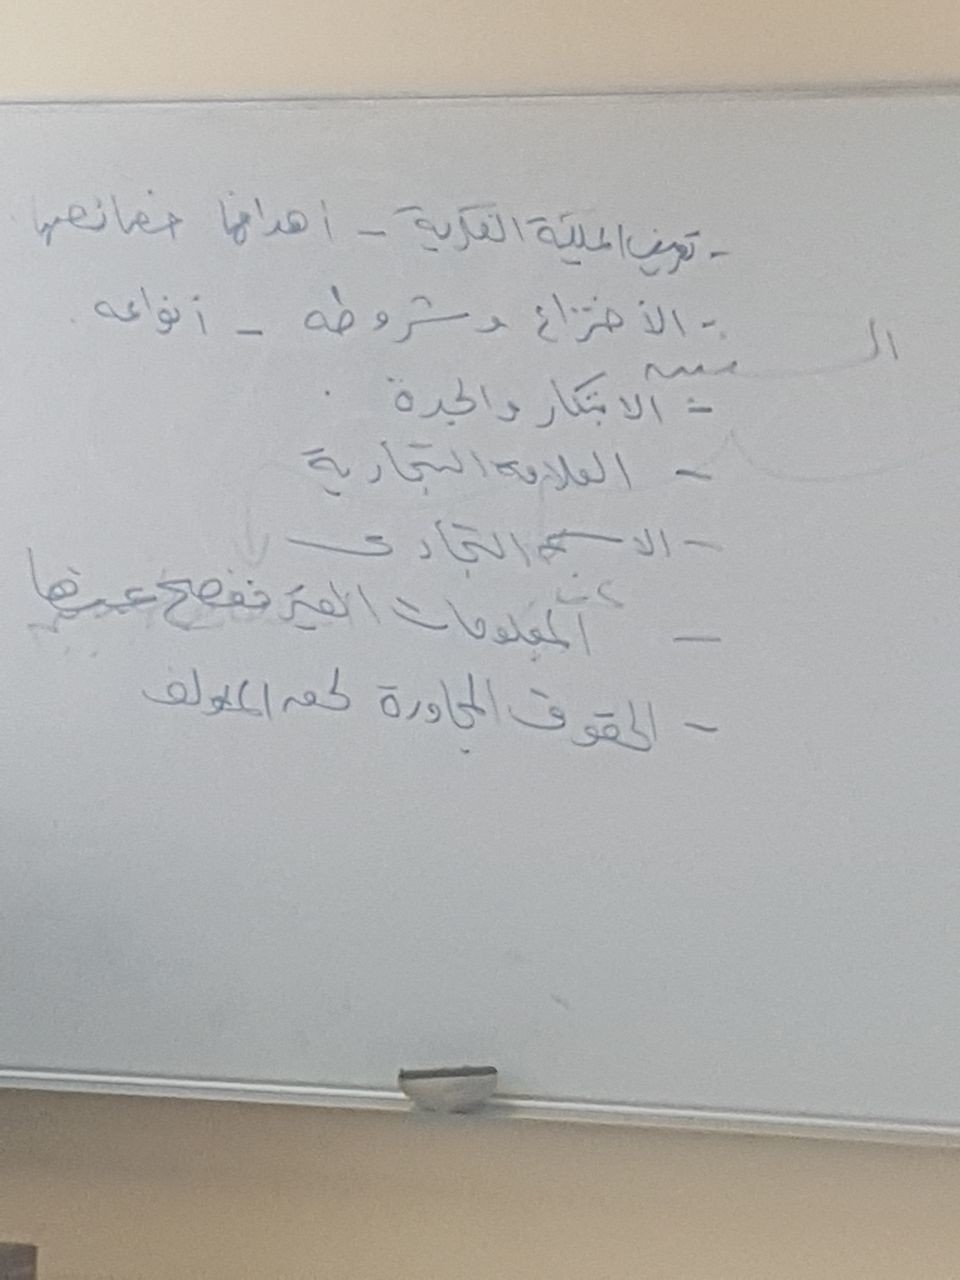 - تعريف الملكية الفكرية - أهدافها خصائصها
- الأختراع وشروطه - أنواعه.
ال
- الابتكار والجدة.
- العلامة التجارية
- الاسم التجاري
- المعلومات الغير مفصح عنها
- الحقوق المجاورة لحق المؤلف